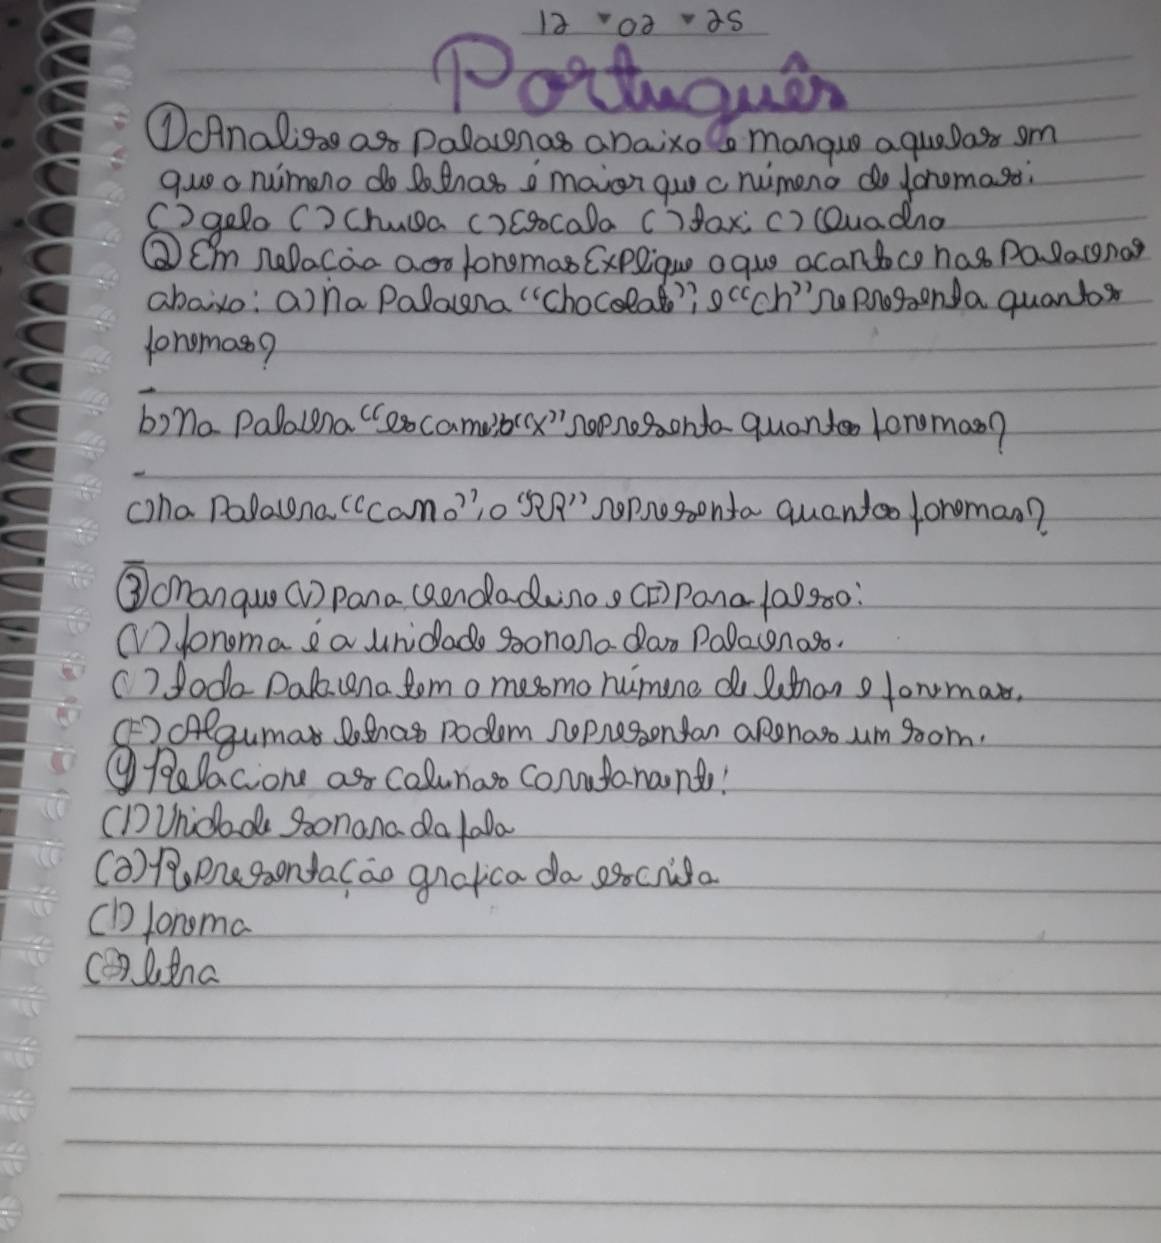 12 ▾ 02 ▾ 25
Português
① Analise as palavras abaixo e marque aquelas em
que o número de letras é maior que o número de fonemas:
( ) gelo ( ) Chuva ( ) Escala ( ) taxi ( ) Quadro
② Em relação aos fonemas Explique o que acontece nas palavras
abaixo: a) na palavra "chocolate", o "ch" representa quantos
fonemas?
b) na palavra "o "x" representa quantos fonemas?
c) na palavra "carro", o "RR" representa quantos fonemas?
③ marque (V) para verdadeiro e (F) para falso:
(V) fonema é a unidade sonora das palavras.
( ) Toda palavra tem o mesmo número de letras e fonemas.
(F) Algumas letras podem representar apenas um som.
④ Relacione as colunas corretamente:
(1) Unidade sonora da fala
(2) Representação grafica da escrita
(1) fonema
(2) letra